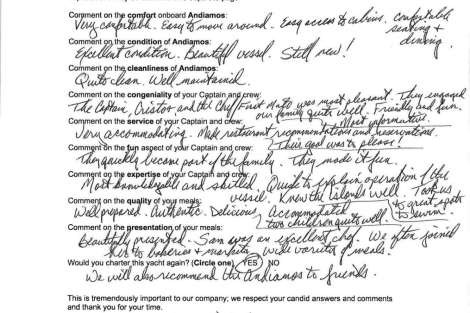 Comment on the comfort onboard Andiamos:
Very comfortable. Easy to move around. Easy access to cabins. comfortable seating + dining.
Comment on the condition of Andiamos:
Excellent condition. Beautiful vessel. Still new!
Comment on the cleanliness of Andiamos:
Quite clean. Well maintained.
Comment on the congeniality of your Captain and crew:
The Captain, and the Chef/First Mate was most pleasant. They engaged
our family quite well. Friendly and fun.
Comment on the service of your Captain and crew: Most informative.
Very accommodating. Made restaurant recommendations and reservations.
Their goal was to please!
Comment on the fun aspect of your Captain and crew:
They quickly became part of the family. They made it fun.
Comment on the expertise of your Captain and crew:
Most knowledgeable and skilled. Quick to explain operation of the
vessel. Knew the islands well. Took us
to great spots
to swim.
Comment on the quality of your meals:
Well prepared. Authentic. Delicious. Accommodated
two children quite well.
Comment on the presentation of your meals:
Beautifully presented. Sam was an excellent chef. We often joined
her to bakeries + markets. Wide variety of meals!
Would you charter this yacht again? (Circle one) YES NO
We will also recommend the Andiamos to friends.
This is tremendously important to our company; we respect your candid answers and comments
and thank you for your time.